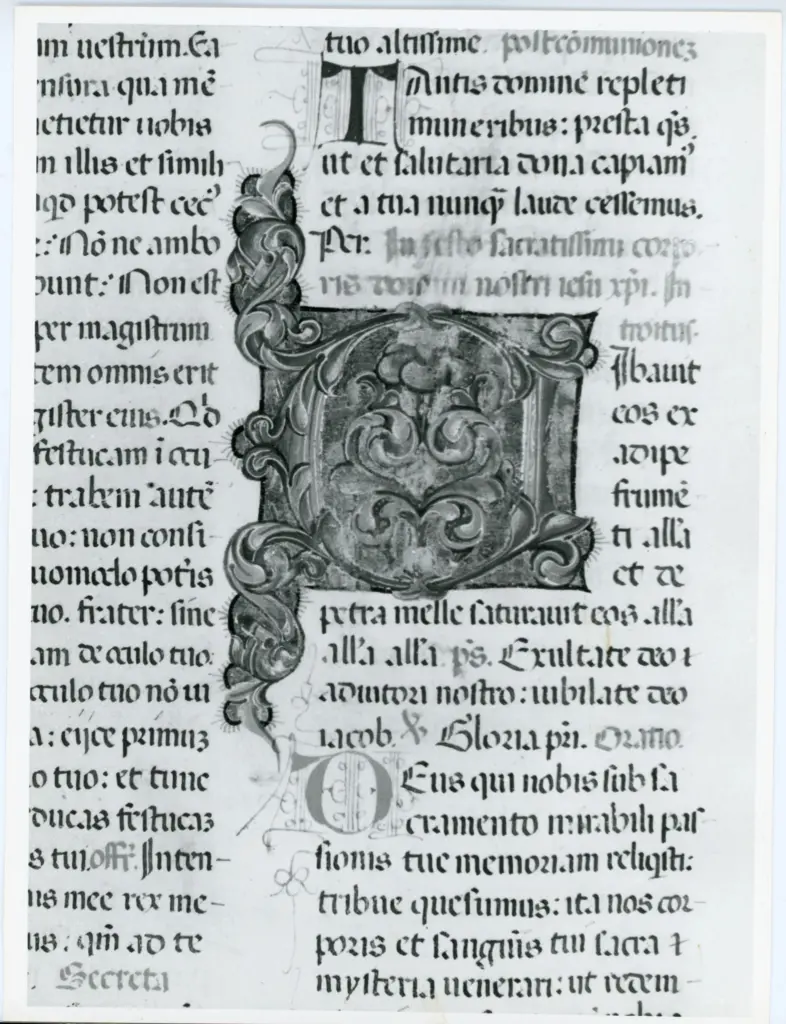 am uestrum. Ea
nsura qua mē
metietur uobis
m illis et simili
qd potest cecꝰ
e: Nō ne ambo
ount: Non est
per magistrum
tem omnis erit
gister eius. Qd
festucam ī ocu
: trabem autē
uo: non consi
uomodo potis
tuo. frater: sine
am de oculo tuo:
oculo tuo nō ui
a: eijce primuꝫ
o tuo: et tunc
ducas festucaꝫ
s tui. offr. Inten-
nis mee rex me-
us: qm̄ ad te
Secreta
tuo altissime. postcōmunioneꝫ
TAntis domine repleti
muneribus: presta qs̄.
ut et salutaria dona capiamꝰ
et a tua nunqȝ laude cessemus.
Per. In festo sacratissimi corpo
ris domini nostri iesu xp̄i. In
troitus.
CIbauit
eos ex
adipe
frumē
ti alla
et de
petra melle saturauit eos alla
alla alla ps̄. Exultate deo ⁊
adiutori nostro: iubilate deo
iacob. ℣ Gloria pri. Oratio.
DEus qui nobis sub sa
cramento mirabili pas
sionis tue memoriam reliqsti:
tribue quesumus: ita nos cor-
poris et sanguīs tui sacra
mysteria uenerari: ut redem-